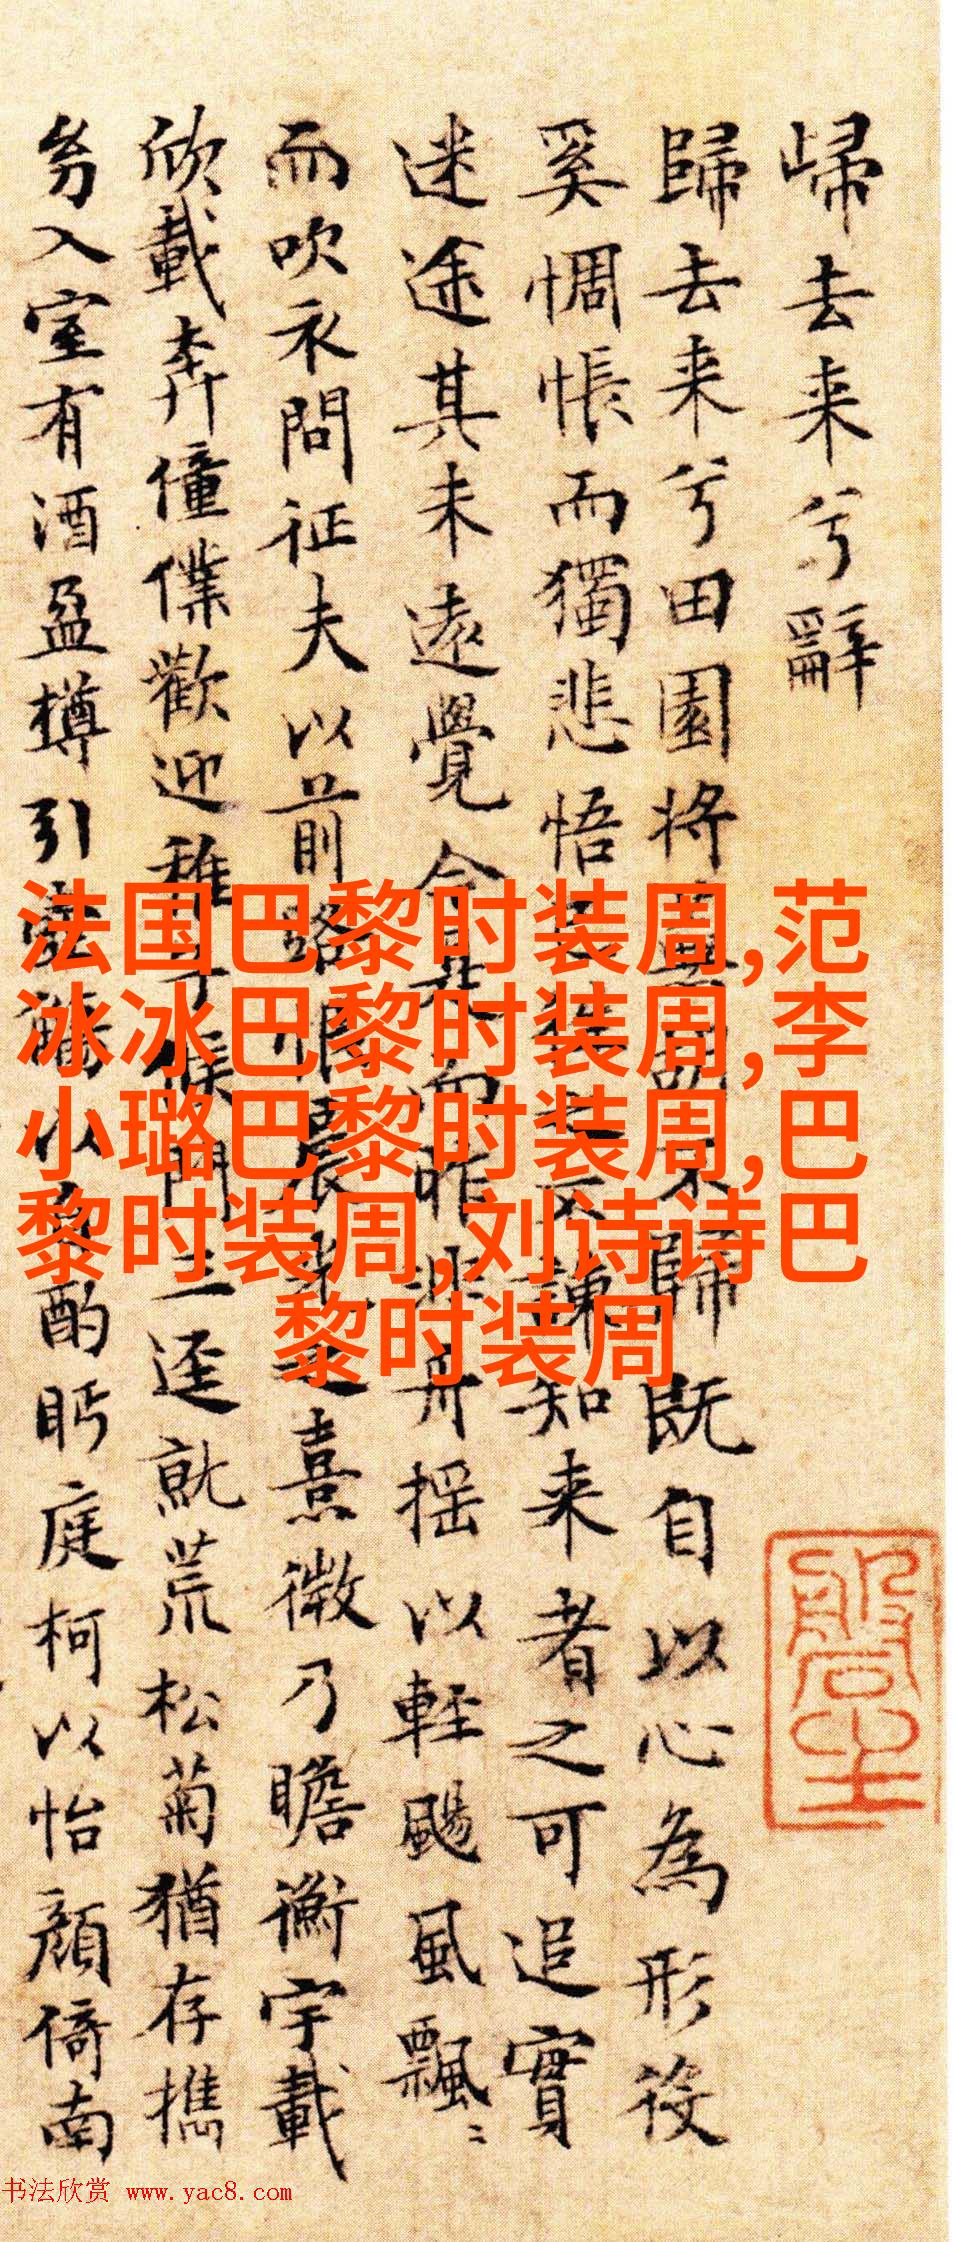 歸去来兮辭
歸去来兮田園将蕪胡不歸既自以心為形役
奚惆悵而獨悲悟已往之不諫知来者之可追實
迷途其未遠覺今是而昨非舟摇以輕颺風飄〻
而吹衣問征夫以前路恨晨光之熹微乃瞻衡宇載
欣載奔僮僕歡迎稚子候門三逕就荒松菊猶存携
幼入室有酒盈樽引壺觴以自酌眄庭柯以怡顔倚南
法国巴黎时装周,范
冰冰巴黎时装周,李
小璐巴黎时装周,巴
黎时装周,刘诗诗巴
黎时装周
书法欣赏 www.yac8.com